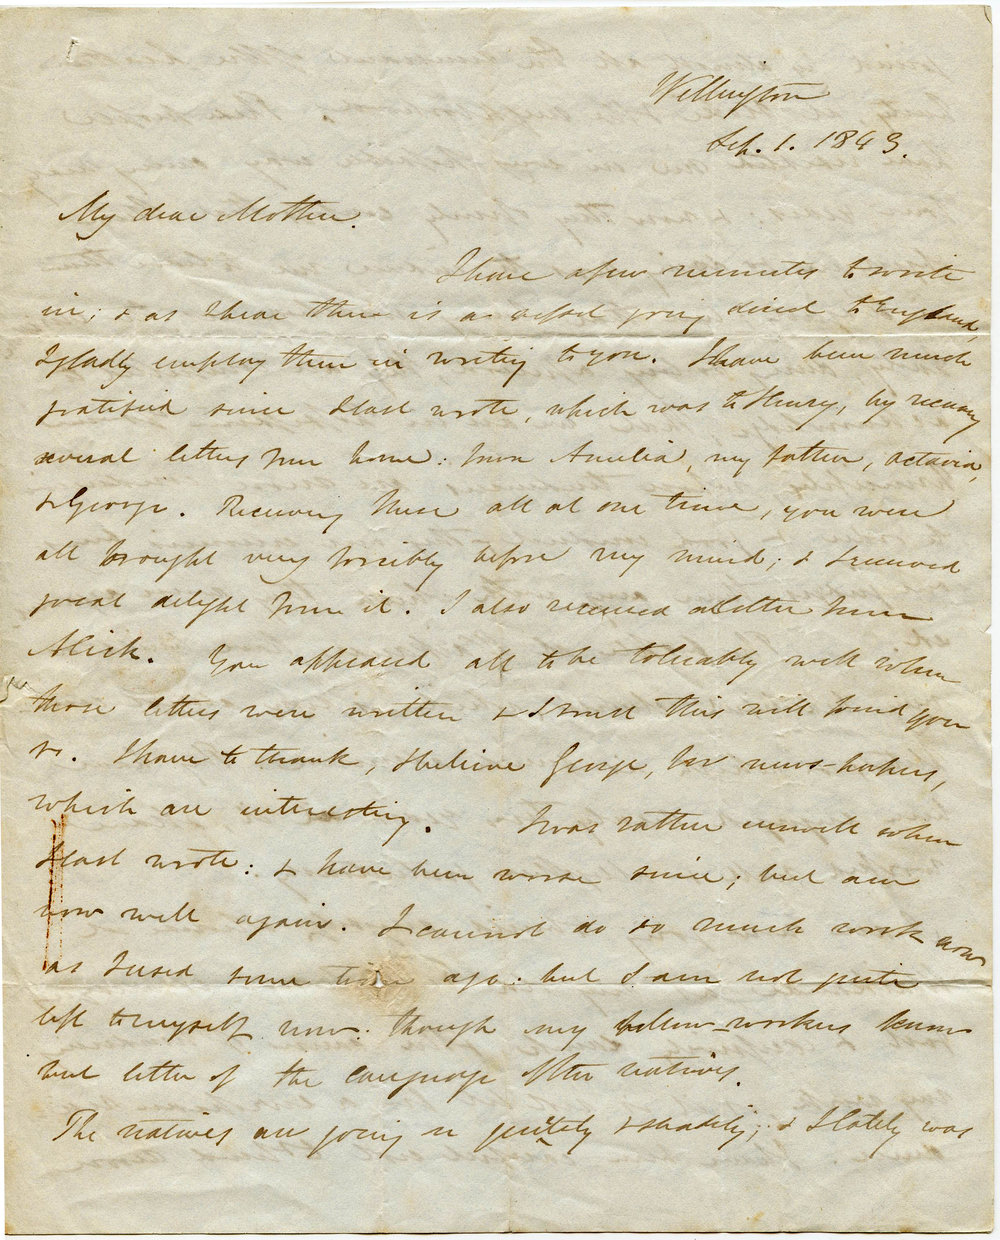 Wellington
Sep. 1. 1843.
My dear Mother.
I have a few minutes to write
in; & as I hear there is a vessel going direct to England,
I gladly employ them in writing to you. I have been much
gratified since I last wrote, which was to Henry, by receiving
several letters from home: from Amelia, my father, Octavia,
& George. Receiving these all at one time, you were
all brought very forcibly before my mind; & I received
great delight from it. I also received a letter from
Alick. You appeared all to be tolerably well when
those letters were written & I trust this will find you
so. I have to thank, I believe George, for news-papers,
which are interesting. I was rather unwell when
I last wrote: & have been worse since; but am
now well again. I cannot do so much work now
as I used some time ago: but I am not quite
left to myself now. though my fellow-workers know
but little of the language of the natives.
The natives are going on quietly & steadily; & I lately was